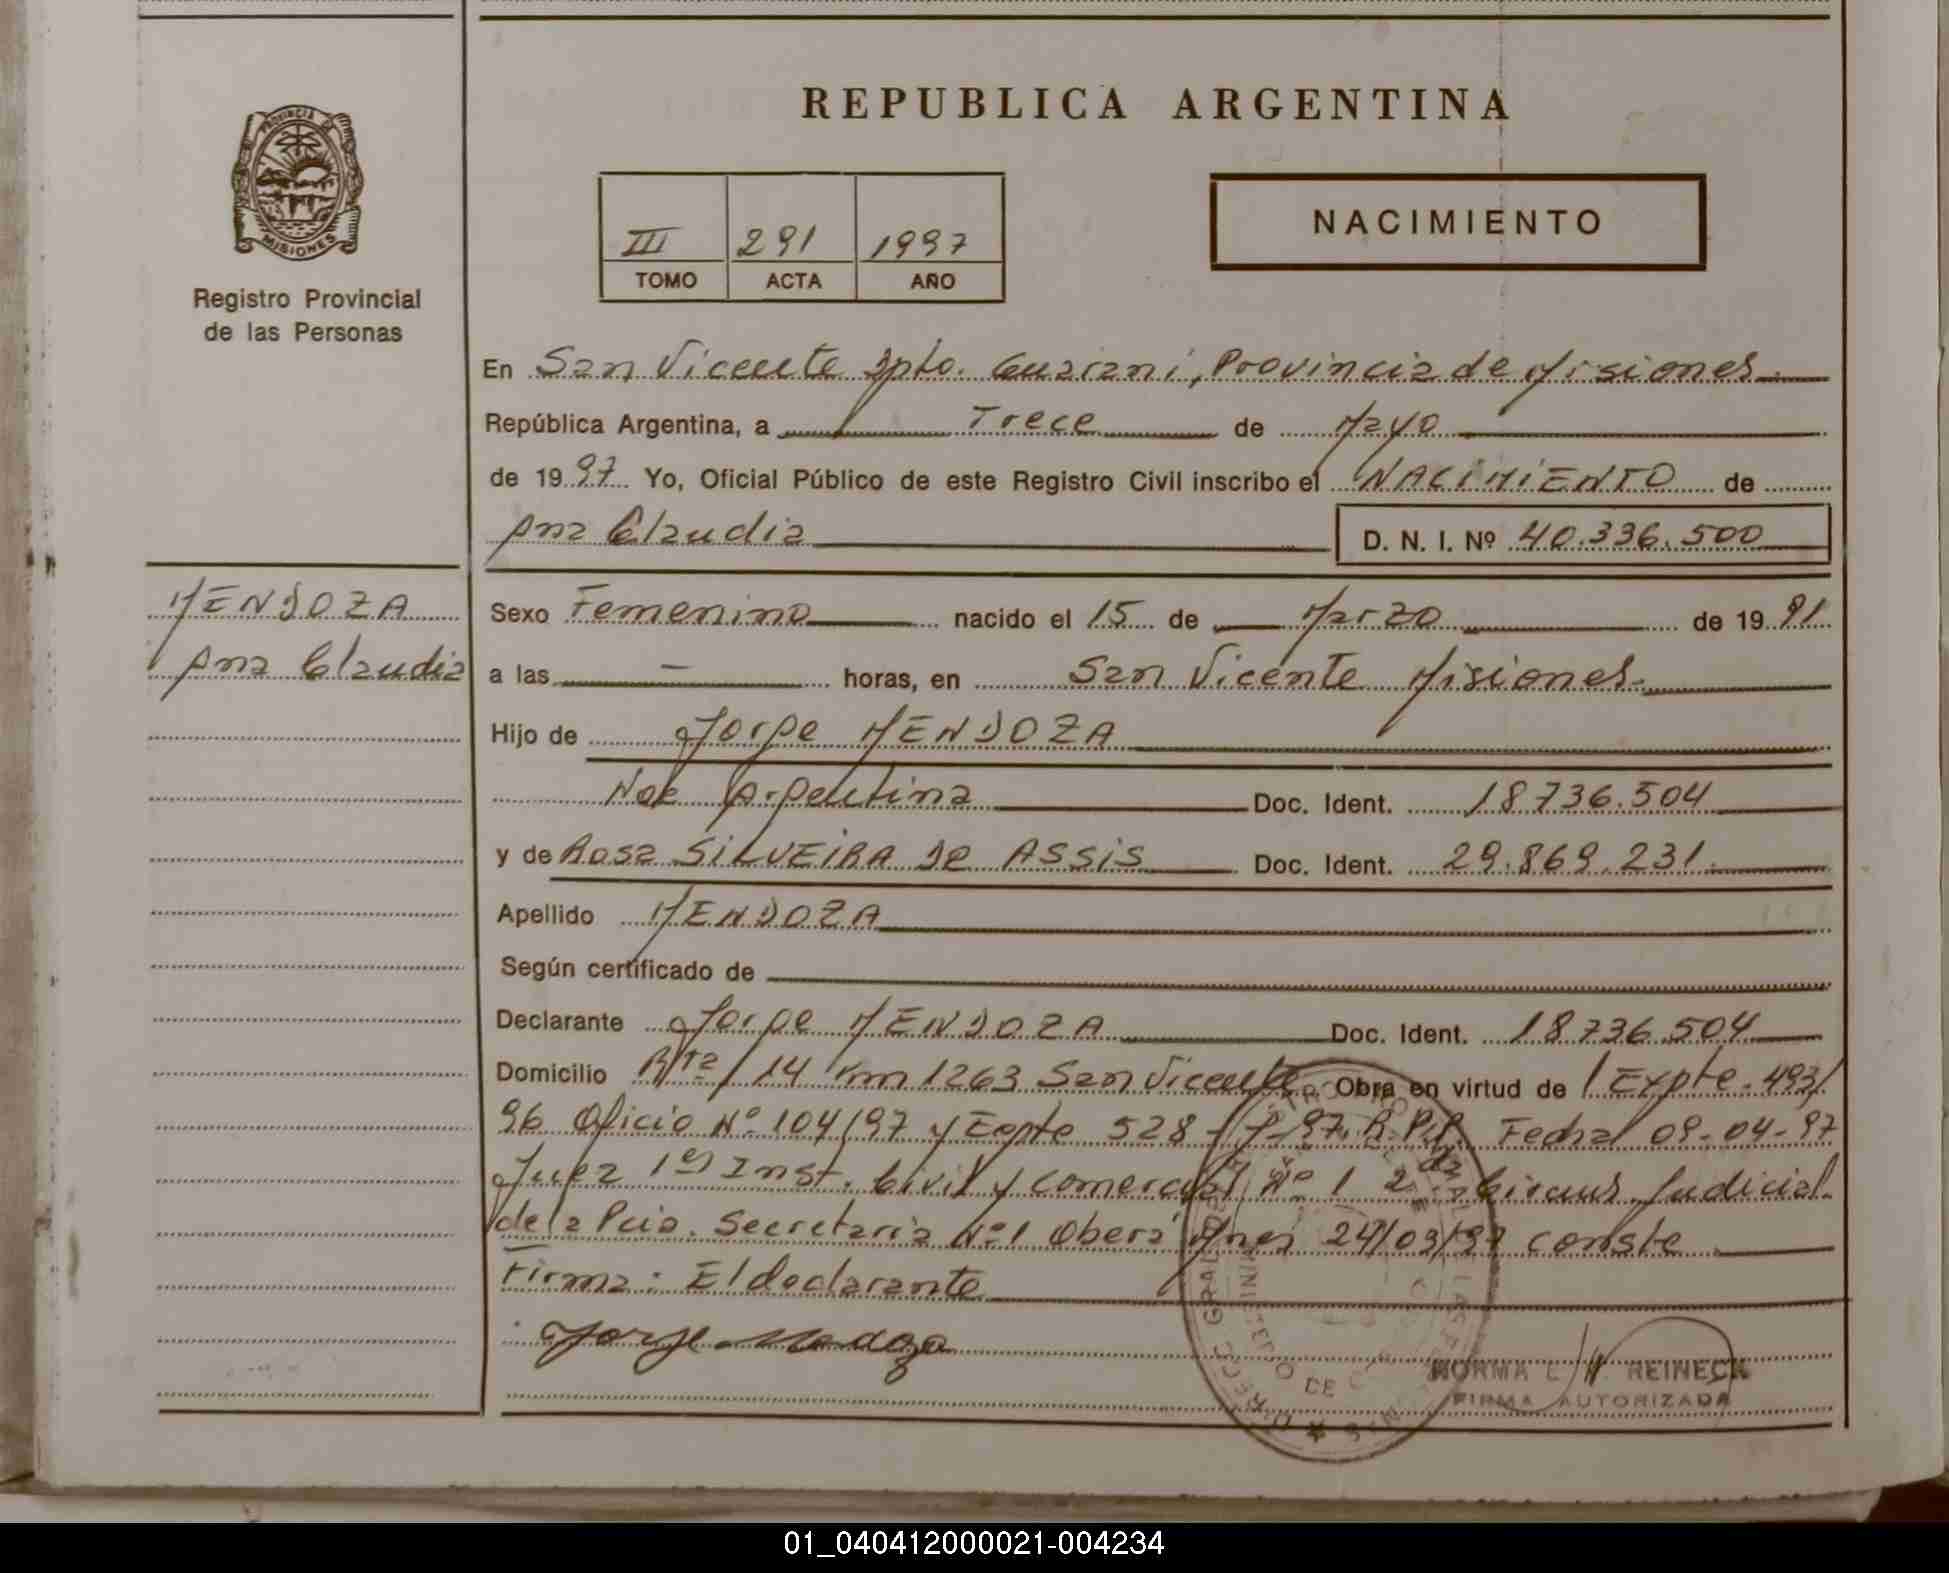 REPUBLICA ARGENTINA
PROVINCIA DE
MISIONES
Registro Provincial
de las Personas
NACIMIENTO
III 291 1997
TOMO ACTA AÑO
En San Vicente Dpto. Guarani, Provincia de Misiones
República Argentina, a Trece de Mayo
de 1997 Yo, Oficial Público de este Registro Civil inscribo el NACIMIENTO de
Ana Claudia D. N. I. Nº 40.336.500
MENDOZA
Ana Claudia
Sexo Femenino nacido el 15 de Marzo de 1991
a las — horas, en San Vicente Misiones.
Hijo de Jorge MENDOZA
Nac Argentina Doc. Ident. 18736.504
y de Rosa SILVEIRA de ASSIS Doc. Ident. 29.869.231.
Apellido MENDOZA
Según certificado de
Declarante Jorge MENDOZA Doc. Ident. 18736.504
Domicilio Rta 14 Km 1263 San Vicente Obra en virtud de Expte. 493/
96 Oficio Nº 104/97 y Expte 528-P-97. R.P.P. Fecha 09-04-97
Juez 1era Inst. Civil y Comercial Nº 1 2da Circuns. Judicial
de la Pcia. Secretaria Nº1 Oberá Mnes 24/03/97 conste
Firma: El declarante
Jorge Mendoza
NORMA L. REINECK
FIRMA AUTORIZADA
01_040412000021-004234